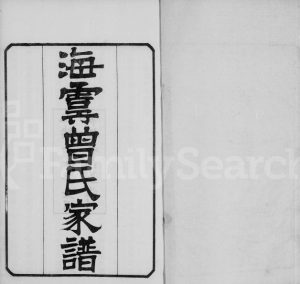 海虞曾氏家譜
FamilySearch